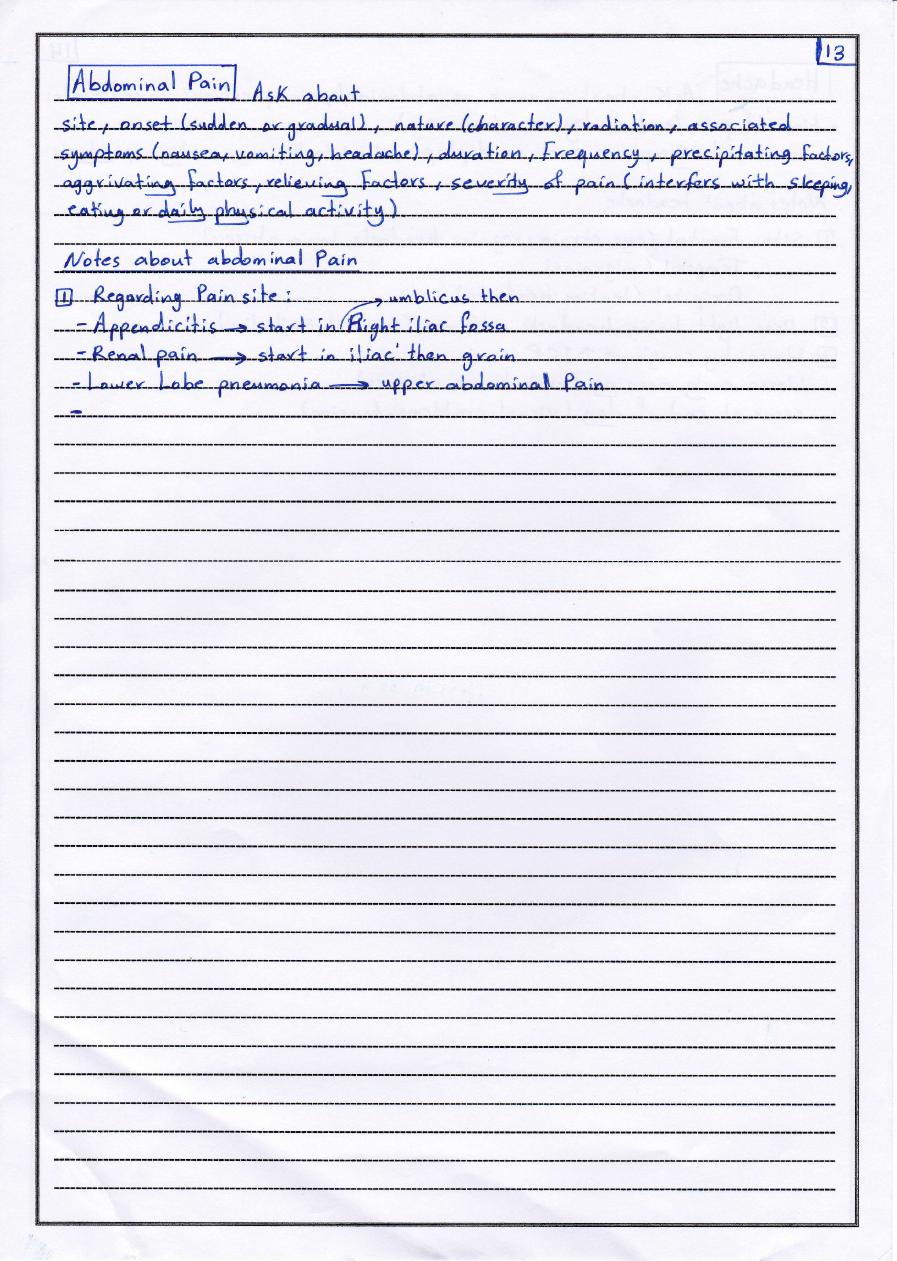 13
Abdominal Pain Ask about
site, onset (sudden or gradual), nature (character), radiation, associated
symptoms (nausea, vomiting, headache), duration, Frequency, precipitating factors,
aggrivating factors, relieving factors, severity of pain (interfers with sleeping,
eating or daily physical activity)
Notes about abdominal Pain
1 Regarding Pain site:
umblicus then
- Appendicitis → start in Right iliac fossa
- Renal pain → start in iliac then grain
- Lower Lobe pneumonia → upper abdominal Pain
-